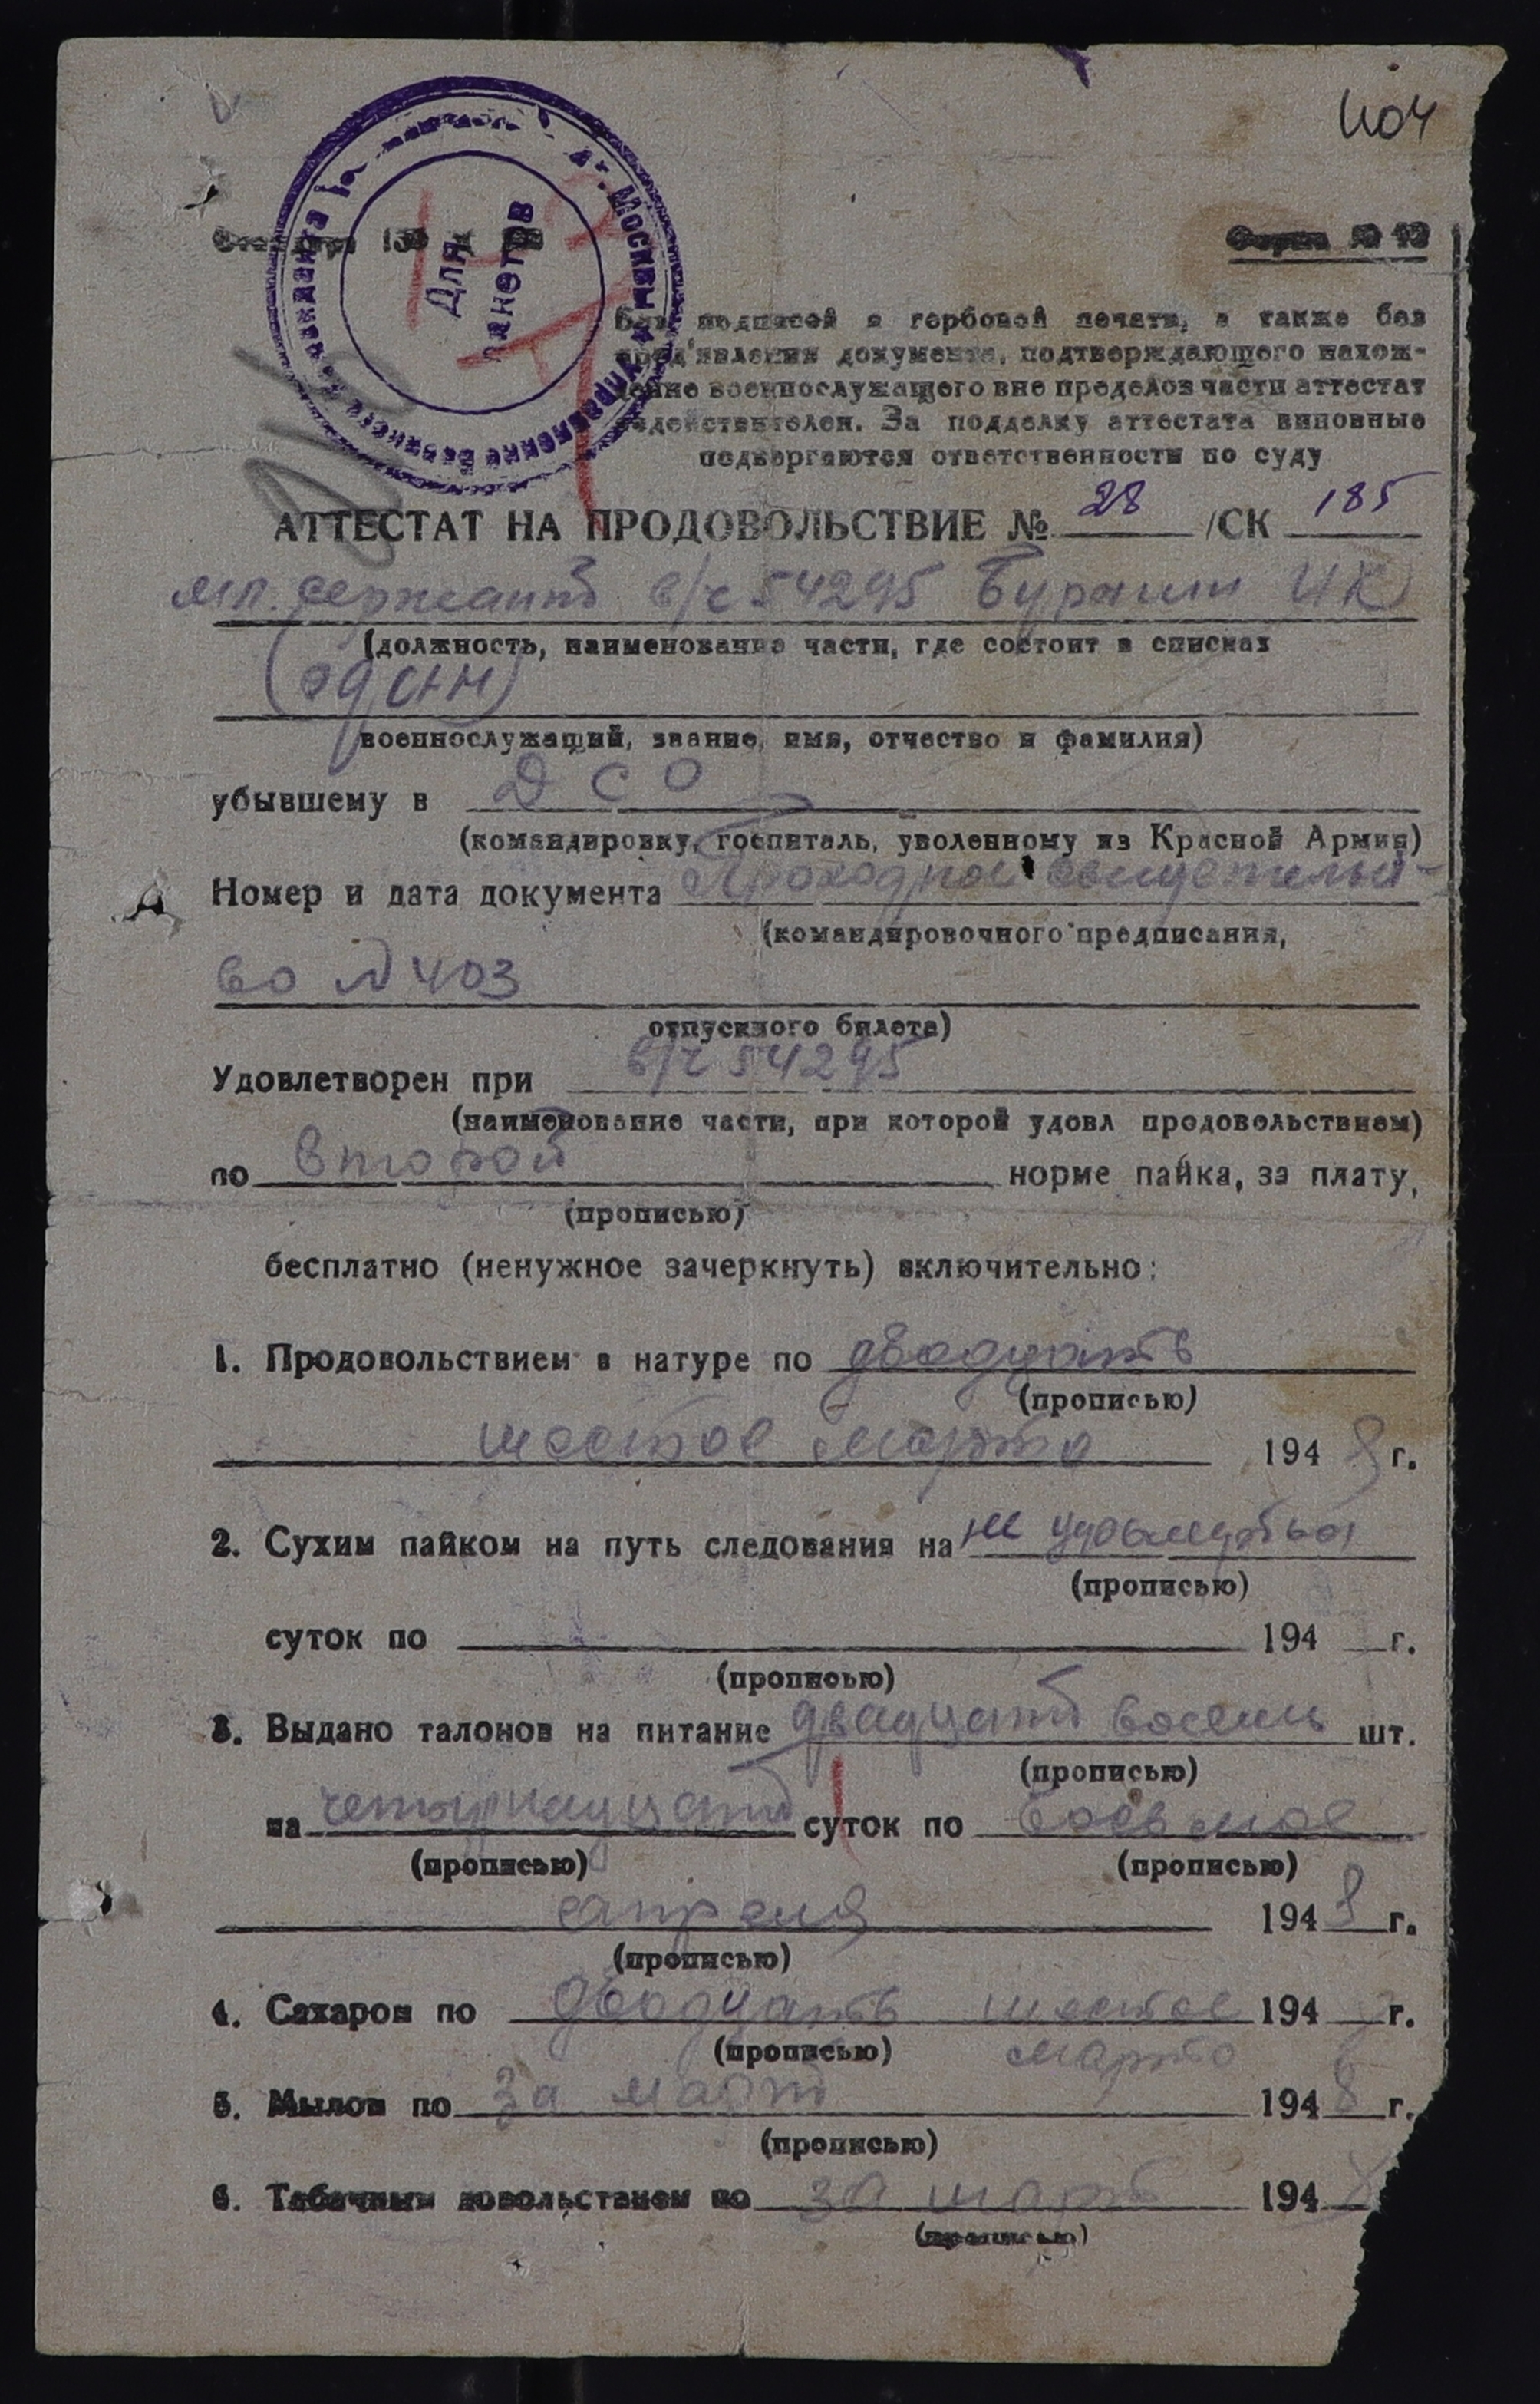 404
Форма № 10
Для
пакетов
г. Москвы
Управление
Без подписей и гербовой печати, а также без
пред'явления документа, подтверждающего нахож-
дение военнослужащего вне пределов части аттестат
недействителен. За подделку аттестата виновные
подвергаются ответственности по суду
АТТЕСТАТ НА ПРОДОВОЛЬСТВИЕ № 28 /СК 185
мл. сержант в/ч 54295 ИК
(должность, наименование части, где состоит в списках
(один)
военнослужащий, звание, имя, отчество и фамилия)
убывшему в ДСО
(командировку, госпиталь, уволенному из Красной Армии)
Номер и дата документа Проходное свидетельст-
(командировочного предписания,
во № 403
отпускного билета)
в/ч 54295
Удовлетворен при
(наименование части, при которой удовл продовольствием)
по второй норме пайка, за плату,
(прописью)
бесплатно (ненужное зачеркнуть) включительно:
1. Продовольствием в натуре по двадцать
(прописью)
шестое марта 1948 г.
2. Сухим пайком на путь следования на не
(прописью)
суток по 194 г.
(прописью)
3. Выдано талонов на питание двадцать восемь шт.
(прописью)
на четырнадцать суток по восьмое
(прописью) (прописью)
апреля 1948 г.
(прописью)
4. Сахаром по двадцать шестое 194 г.
(прописью) марта
5. Мылом по за март 1948 г.
(прописью)
6. Табачным довольствием по за март 1948
(прописью)